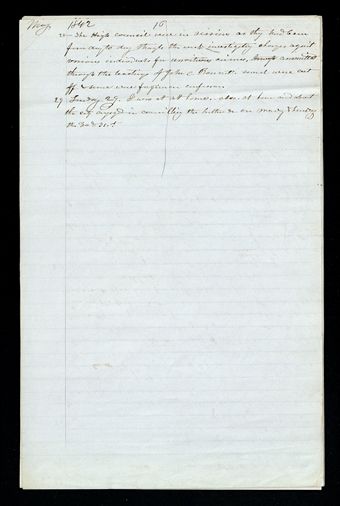 May 1842 16
28 The High council were in session as they had been
from day to day through the week investigating charges against
various individuals for unvirtuous crimes, committed
through the teachings of John C. Bennett. Several were cut
off & some were forgiven on confession.
29 Sunday 29. I was at home, also at home and about
the city engaged in counselling the brethren &c on Monday & Tuesday
the 30 & 31st.